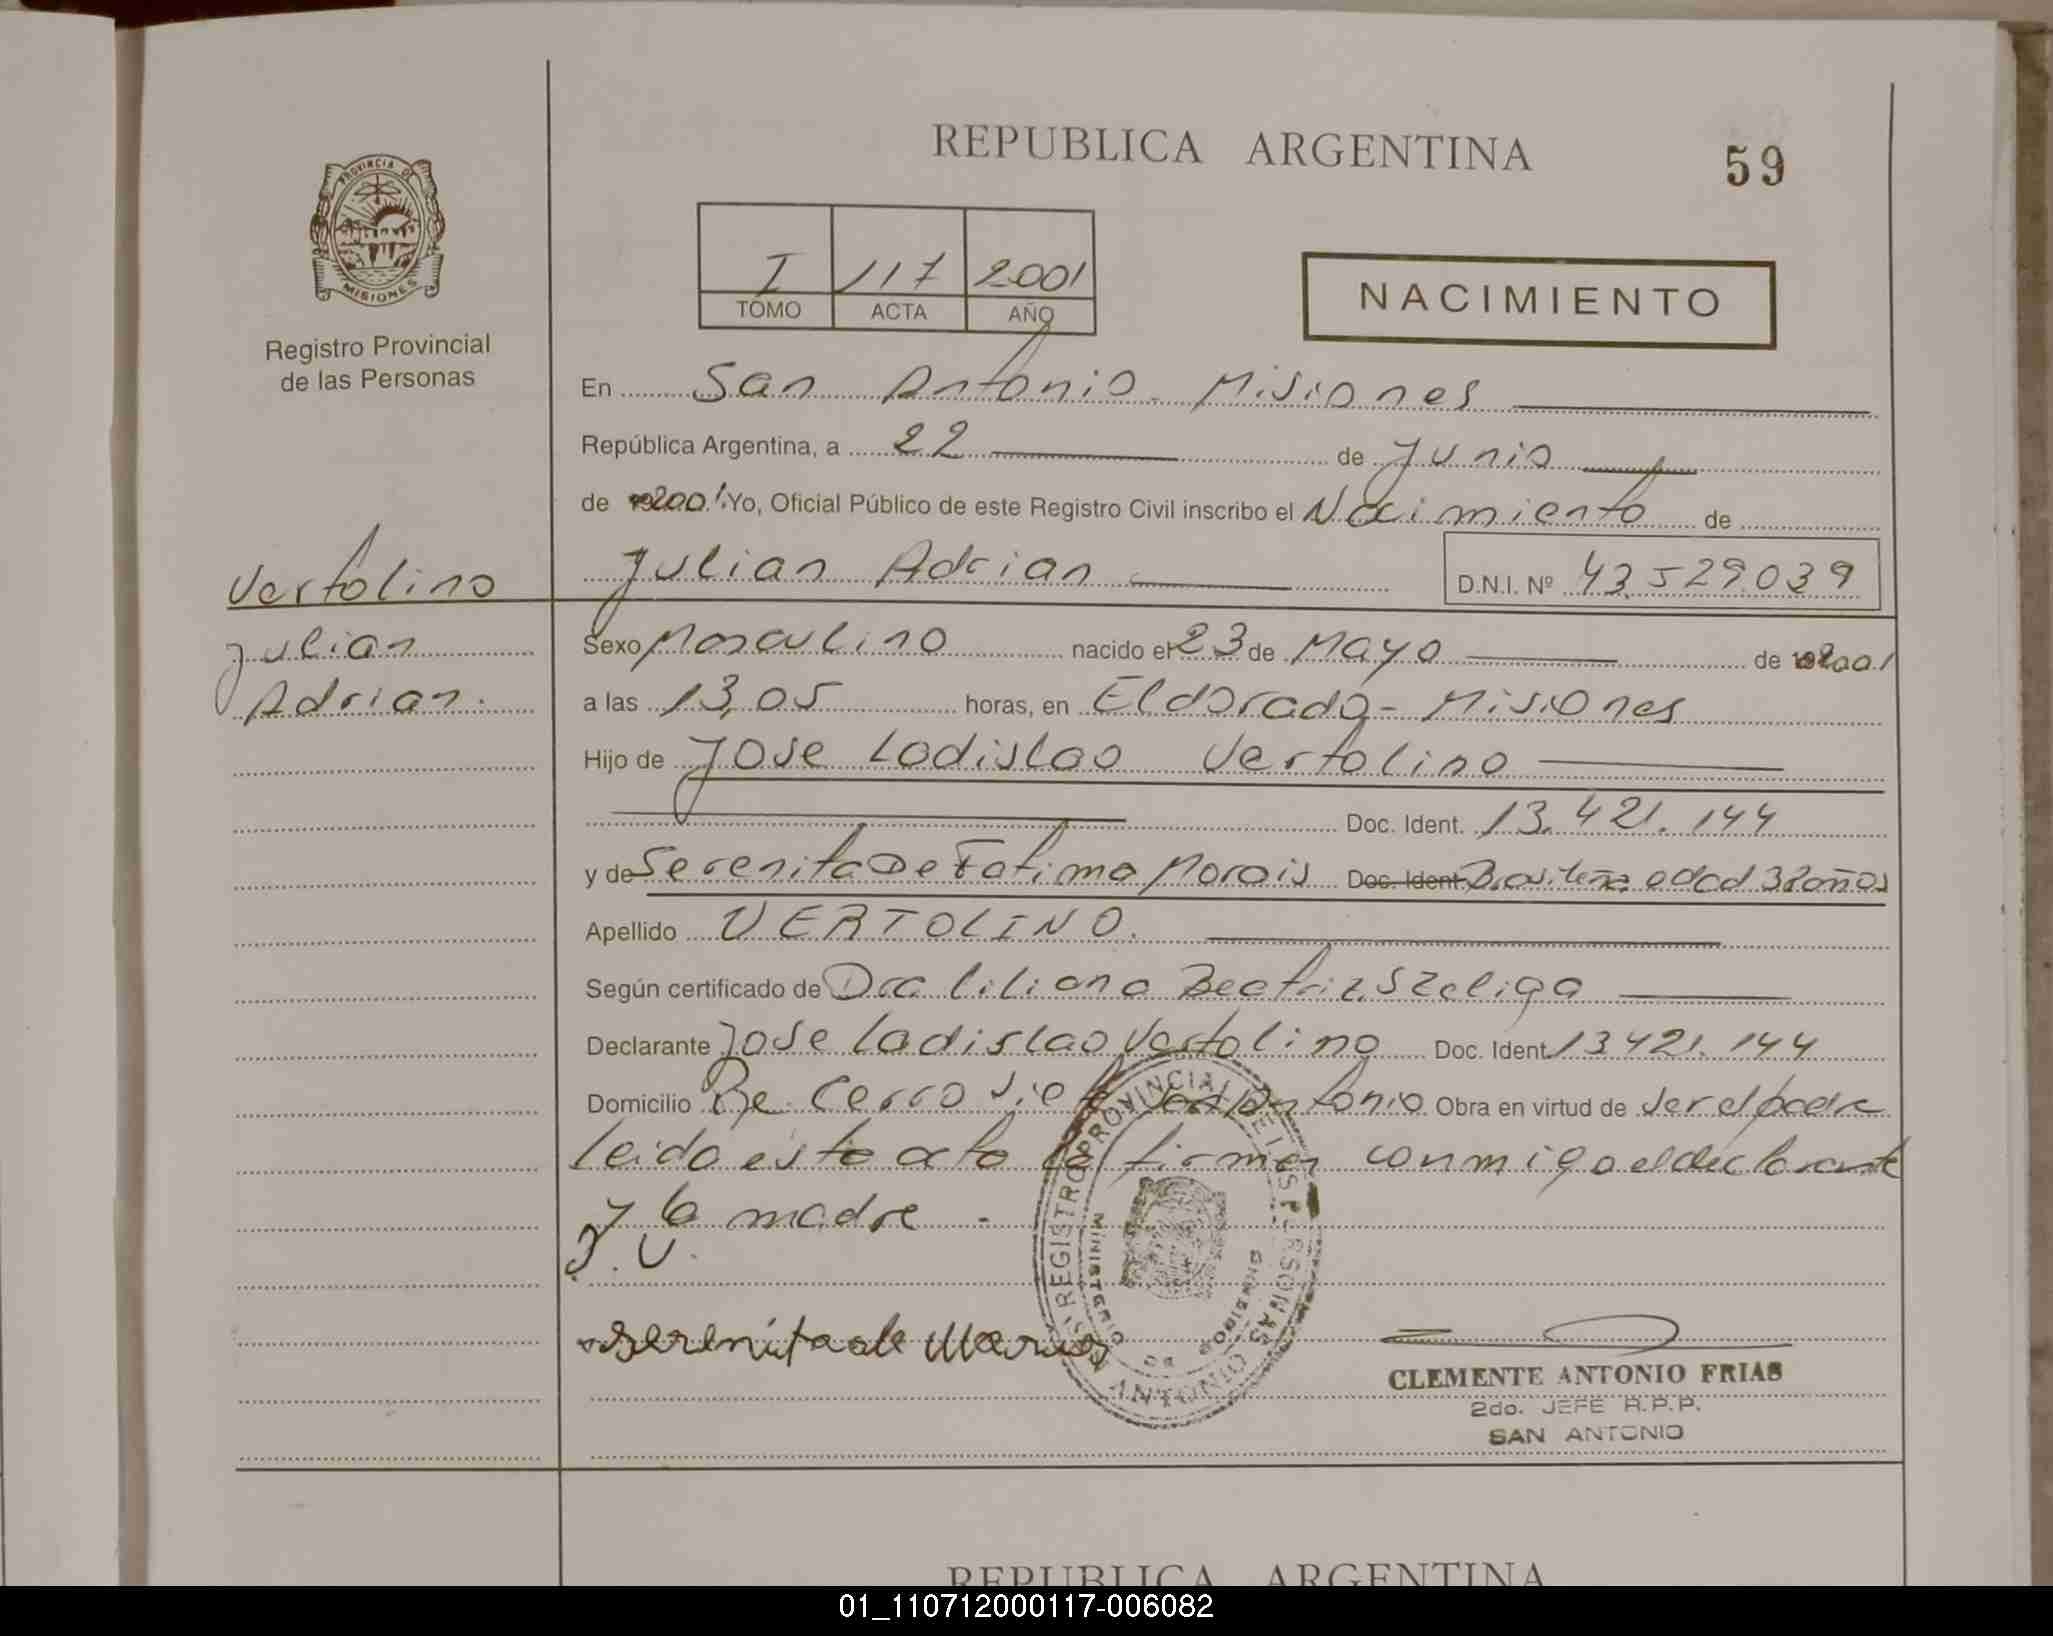 REPUBLICA ARGENTINA
59
PROVINCIA DE
MISIONES
Registro Provincial
de las Personas
I 117 2001
TOMO ACTA AÑO
NACIMIENTO
En San Antonio - Misiones
República Argentina, a 22 de Junio
de 2001. Yo, Oficial Público de este Registro Civil inscribo el Nacimiento de
Vertolino
Julian Adrian D.N.I. Nº 43.529.039
Julian
Sexo Masculino nacido el 23 de Mayo de 2001
Adrian.
a las 13,05 horas, en Eldorado - Misiones
Hijo de Jose Ladislao Vertolino
Doc. Ident. 13.421.144
y de Serenita De Fatima Morais Doc. Ident. Brasileña edad 32 años
Apellido VERTOLINO.
Según certificado de Dra. Liliana Beatriz Szeliga
Declarante Jose Ladislao Vertolino Doc. Ident. 13.421.144
Domicilio Be. Cerro Siete San Antonio Obra en virtud de ser el padre
leida esta acta la firman conmigo el declarante
y la madre -
J. V.
Serenita de
REGISTRO PROVINCIAL DE LAS PERSONAS
MINISTERIO DE GOBIERNO
SAN ANTONIO
CLEMENTE ANTONIO FRIAS
2do. JEFE R.P.P.
SAN ANTONIO
REPUBLICA ARGENTINA
01_110712000117-006082